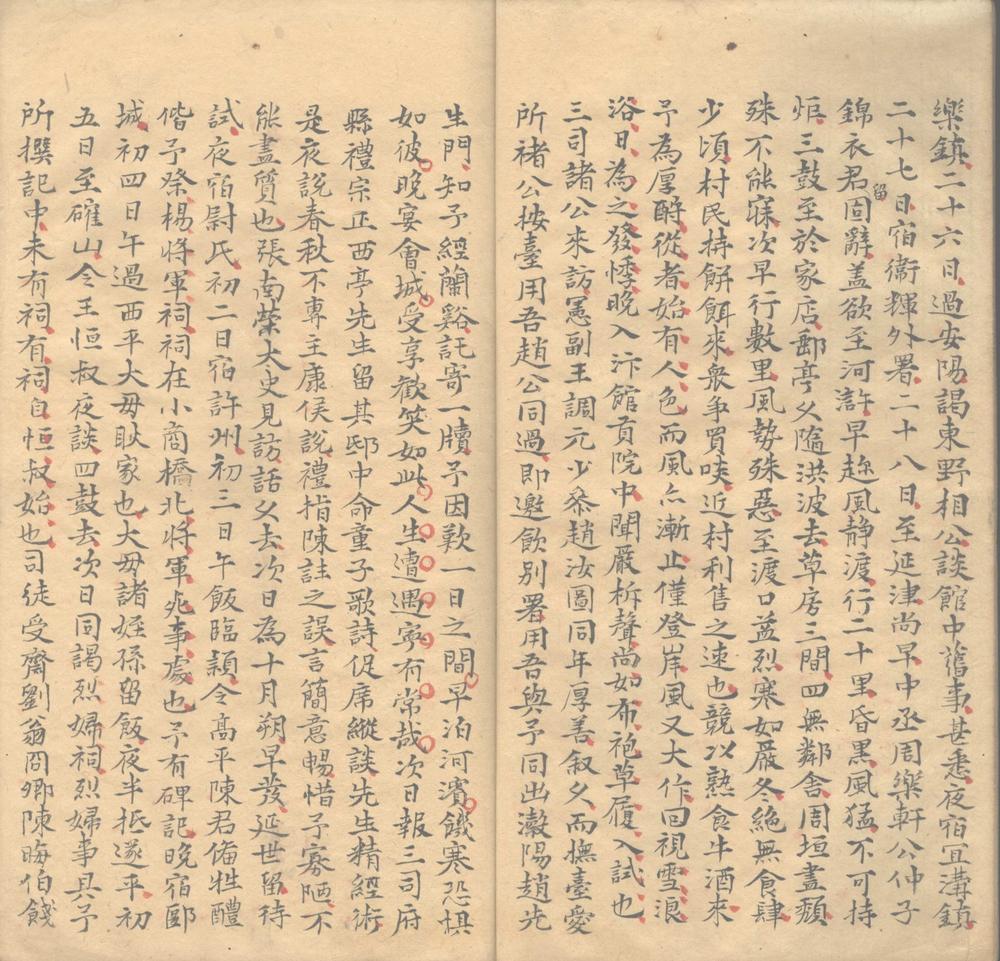 樂鎮二十六日過安陽謁東野相公談館中舊事甚悉夜宿宜溝鎮
二十七日宿衞輝外署二十八日至延津尚早中丞周樂軒公仲子
錦衣君固留辭盖欲至河滸早趂風静渡行二十里昏黑風猛不可持
炬三鼓至於家店郵亭乆隨洪波去草房三間四無鄰舎周垣盡頽
殊不能寐次早行數里風勢殊惡至渡口益烈寒如嚴冬絶無食肆
少頃村民持餅餌來衆爭買啖近村利售之速也競以熟食牛酒來
予為厚酹從者始有人色而風亦漸止僅登岸風又大作回視雪浪
浴日為之發悸晚入汴館貢院中聞嚴柝聲尚如布袍草履入試也
三司諸公來訪憲副王調元少叅趙汝圖同年厚善叙乆而撫臺愛
所褚公按臺用吾趙公同過即邀飲别署用吾與予同出瀫陽趙先
生門知予經蘭谿託寄一牘予因歎一日之間早泊河濱饑寒恐惧
如彼晚宴會城受享歡笑如此人生遭遇寧有常哉次日報三司府
縣禮宗正西亭先生留其邸中命童子歌詩促席縱談先生精經術
是夜説春秋不專主康侯説禮指陳註之誤言簡意暢惜予寡陋不
能盡質也張南榮大史見訪話乆去次日為十月朔早發延世留待
試夜宿尉氏初二日宿許州初三日午飯臨潁令髙平陳君備牲醴
偕予祭楊將軍祠祠在小商橋北將軍死事處也予有碑記晚宿郾
城初四日午過西平大毋耿家也大毋諸姪孫留飯夜半抵遂平初
五日至確山令王恒叔夜談四鼓去次日同謁烈婦祠烈婦事具予
所撰記中未有祠有祠自恒叔始也司徒受齋劉翁冏卿陳晦伯餞